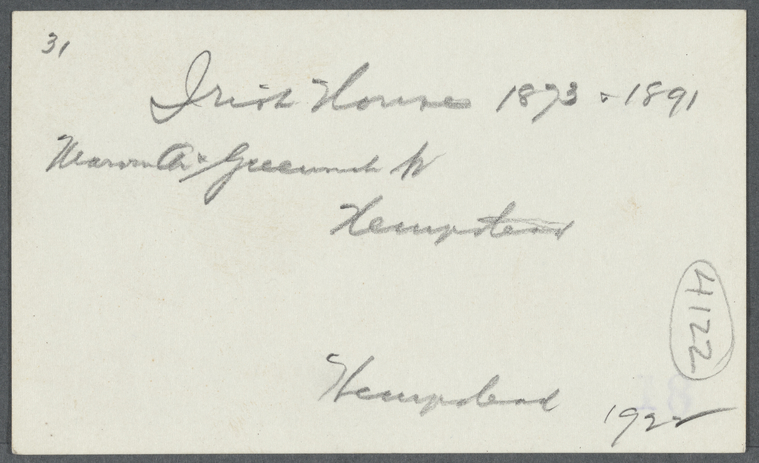 31
Irish House 1873 & 1891
Marvin Av & Greenwich St
Hempstead
4122
Hempstead
1922